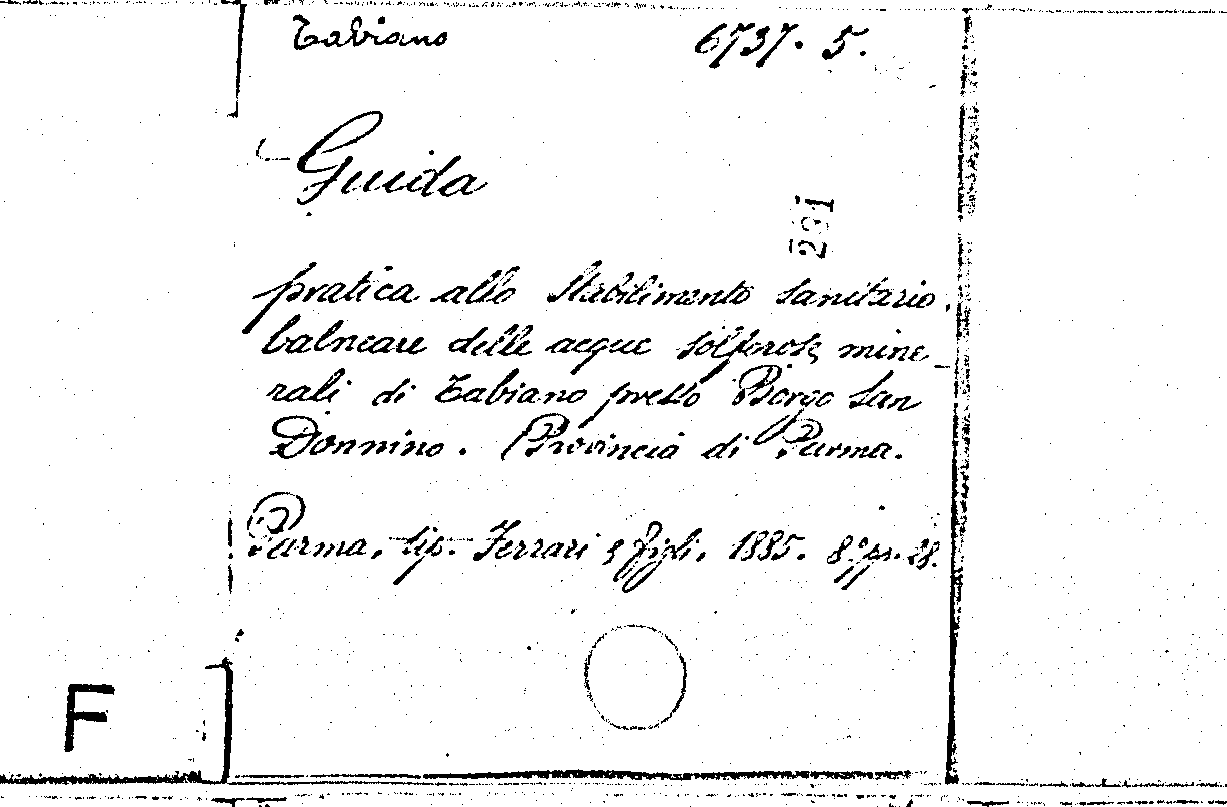 Tabiano 6737. 5.
Guida
291
pratica allo Stabilimento sanitario.
balneare delle acque solforose mine-
rali di Tabiano presso Borgo San
Donnino. (Provincia di Parma.
Parma, tip. Ferrari e figli, 1885. 8° pp. 28.
F